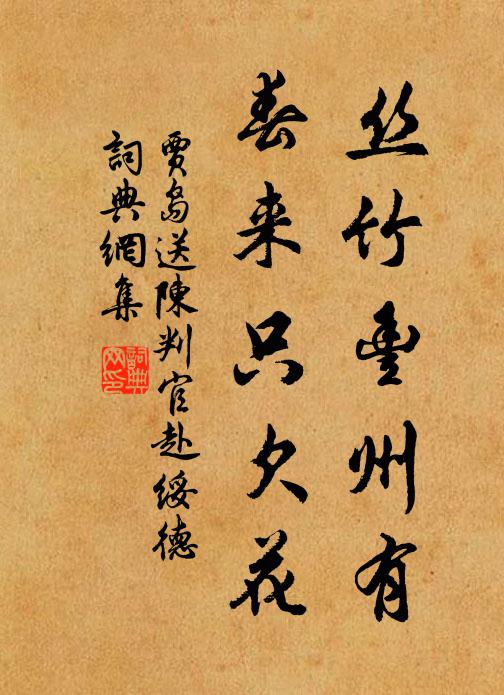 丝竹豊州有
春来只欠花
賈島送陳判官赴綏德
詞典網集
詞典网印